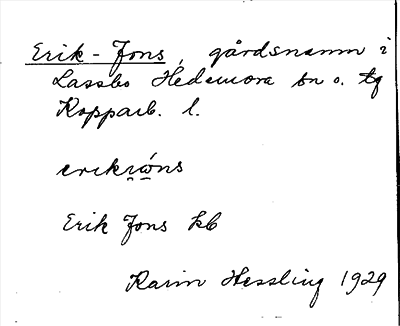 Erik-Jons, gårdsnamn i
Lassbo Hedemora sn o. tg
Kopparb. l.
Erik Jons kb
Karin Hessling 1929